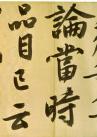 論當時
品目已云